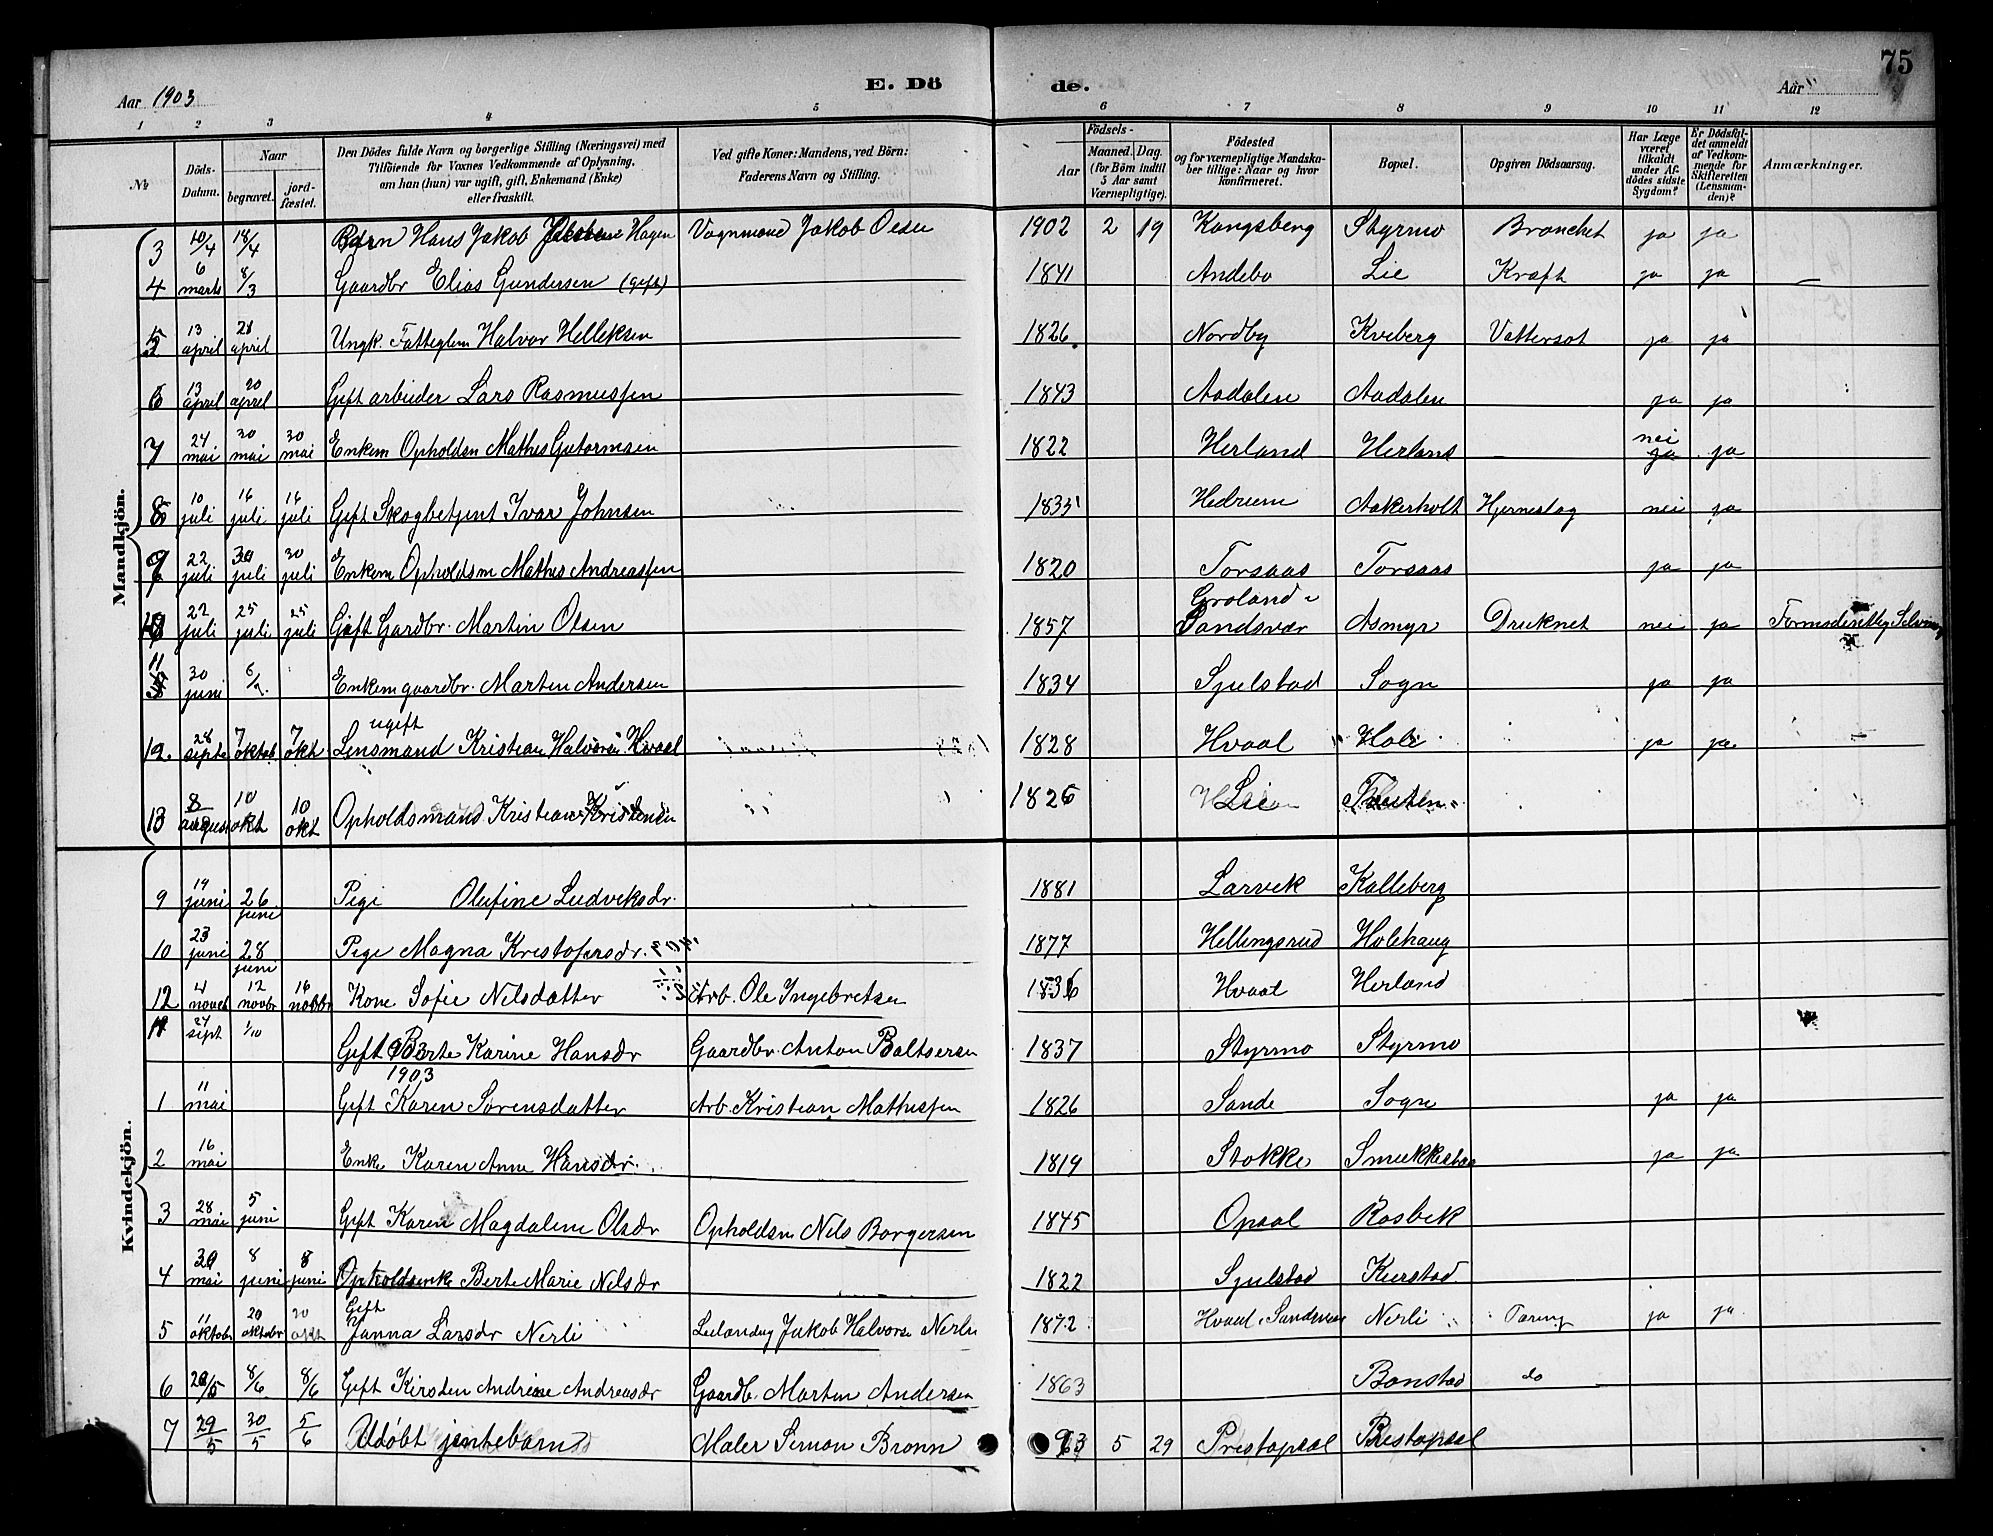 75
E. Dö de.
Aar 1903 Aar
1 2 3 4 5 6 7 8 9 10 11 12
№ Döds-Datum. Naar begravet. jord-fæstet. Den Dödes fulde Navn og borgerlige Stilling (Næringsvei) med Tilföiende for Voxnes Vedkommende af Oplysning, om han (hun) var ugift, gift, Enkemand (Enke) eller fraskilt. Ved gifte Koner: Mandens, ved Börn: Faderens Navn og Stilling. Födsels- Aar Maaned. Dag. (for Börn indtil 5 Aar samt Værnepligtige). Födested og for værnepligtige Mandskaber tillige: Naar og hvor konfirmeret. Bopæl. Opgiven Dödsaarsag. Har Læge været tilkaldt under Afdödes sidste Sygdom? Er Dödsfaldet anmeldt af Vedkommende for Skifteretten (Lensmanden)? Anmærkninger.
Mandkjön.
3 10/4 18/4 Barn Hans Jakob Hagen Vognmand Jakob Olsen 1902 2 19 Kongsberg Styrmo Bronchet ja ja
4 6 marts 8/3 Gaardbr Elias Gundersen (gift) 1841 Andebo Lie Kræft ja ja —
5 13 april 21 april Ungk. Fatteglem Halvor Helleksen 1826 Nordby Kveberg Vattersot ja ja
6 13 april 20 april Gift arbeider Lars Rasmussen 1843 Aadalen Aadalen ja ja
7 24 mai 30 mai 30 mai Enkem Opholdsm Mathes Gutormsen 1822 Herland Herland — nei ja ja
8 10 juli 16 juli 16 juli Gift Skogbetjent Ivar Johnsen 1835 Hedrum Aakerholt Hjerneslag nei ja
9 22 juli 30 juli 30 juli Enkem Opholdsm Mathes Andreassen 1820 Torsaas Torsaas ja ja
10 22 juli 25 juli 25 juli Gift Gardbr. Martin Olsen 1857 Groland i Sandsvær Asmyr Druknet nei ja
11 30 juni 6/7. Enkem gaardbr. Marten Andersen 1834 Sjulstad Sogn ja ja
12. 28 septe 7 oktob. 7 okt ugift Lensmand Kristian Halvorsen Hvaal 1828 Hvaal Hole ja ja. —
13 8 august 10 okt 10 okt Opholdsmand Kristian Kristensen 1826 Lie
Kvindekjön.
9 14 juni 26 juni Pige Olufine Ludviksdr. 1881 Larvik Kalleberg
10 23 juni 28 juni Pige Magna Kristofersdr. 1877 Hellingsrud Holehaug
12 4 noveb 12 novbr 16 novbr Kone Sofie Nilsdatter Arb. Ole Ingebretsen 1836 Hvaal Herland
11 24 sept 1/10 Gift Berte Karine Hansdr Gaardbr. Anton Baltsersen 1837 Styrmo Styrmo
1903
1 11 mai Gift Karen Sørensdatter Arb. Kristian Mathessen 1826 Sande Sogn ja ja
2 16 mai Enke Karen Anne Hansdr. 1819 Stokke Smukkestad ja ja
3 28 mai 5 juni Gift Karen Magdalene Olsdr Opholdsm Nils Borgersen 1845 Opsal Rasbek
4 30 mai 8 juni 8 juni Opholdsenke Berte Marie Nilsdr 1822 Sjulstad Kierstad
5 11 oktobr 20 oktober 20 okt Gift Janna Larsdr Nerli Jakob Halvorsen Nerli 1872 Hvaal i Sandsvær Nerli Tæring ja ja
6 28/5 8/6 8/6 Gift Kirsten Andrine Andreasdr Gaardb. Marten Andersen 1863 Bonstad do —
7 29/5 30/5 5/6 Udøbt jentebarn Maler Simon Bronn 93 5 29 Prestopsal Prestopsal